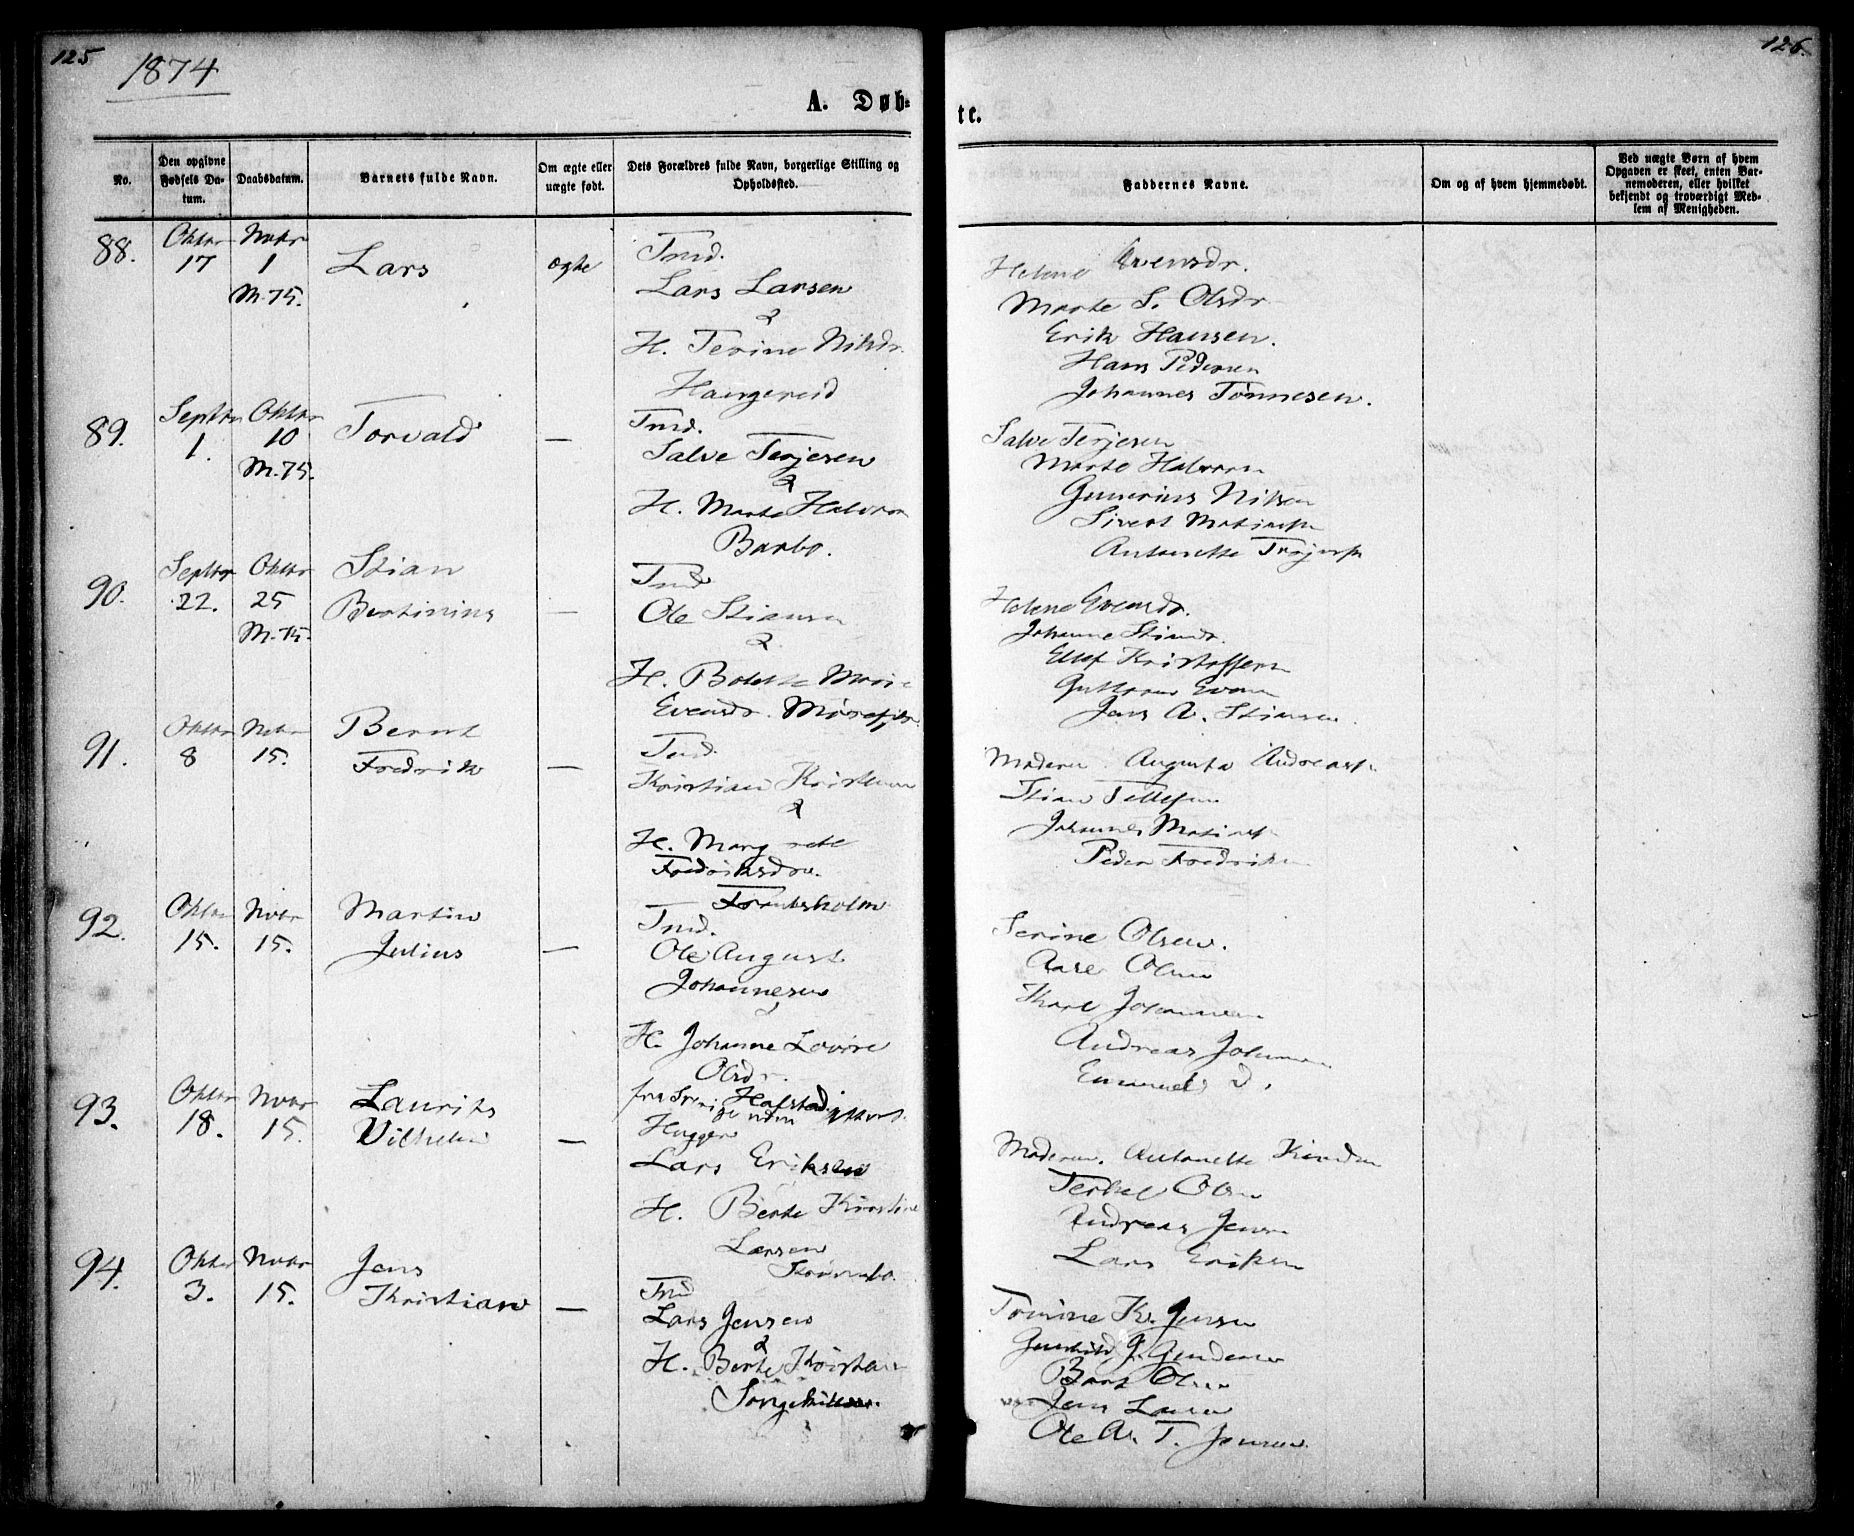 125
1874
126.
A. Døb-
te.
No.
Den opgivne Fødsels Da-tum.
Daabsdatum.
Barnets fulde Navn.
Om ægte eller uægte født.
Dets Forældres fulde Navn, borgerlige Stilling og Opholdssted.
Faddernes Navne.
Om og af hvem hjemmedøbt.
Ved uægte Børn af hvem Opgaven er skeet, enten Bar-nemoderen, eller hvilket bekjendt og troværdigt Med-lem af Menigheden.
88.
Oktbr 17
Nvbr 1
M. 75.
Lars
ægte
Tmd.
Lars Larsen
&
H. Terine Nilsdr.
Haugereid
Helene Evensdr.
Marte S. Olsdr
Erik Hansen.
Hans Pedersen
Johannes Tønnesen.
89.
Septbr 1.
Oktbr 10
M. 75.
Torvald
—
Tmd.
Salve Terjesen
&
H. Marte Halvorsn
Barbo.
Salve Terjesen
Marte Halvorsn
Gunerius Nilsen
Sivert
Antonette
90.
Septbr 22.
Oktbr 25
M. 75.
Stian
Bertinius
—
Tmd
Ole Stiansen
&
H. Bolette Marie
Evensdr. Mørefjær
Helene Evensdr.
Johanne Stiansdr.
Ellef Kristoffersn
Even
Jens A. Stiansen.
91.
Oktbr 8
Nvbr 15.
Bernt
Fredrik
—
Tmd.
Kristian Kristensen
&
H. Margrete
Fredriksdr.
Frantsholm
Moderen. Augusta
Stian Tellefsen
Johannes
Peder Fredriksen
92.
Oktbr 15.
Nvbr 15.
Martin
Julius
—
Tmd.
Ole August
Johannesen
&
H. Johanne Lovise
Olsdr.
Serine Olsen.
Aase Olsen
Karl Johannesen
Andreas Johannesen
Emanuel D.
93.
Oktbr 18.
Nvbr 15.
Laurits
Vilhelm
—
fra Halstad
Hugger
Lars Eriksen
H. Berte Kirstine
Larsen
Moderen. Antonette
Terkel Olsen
Andreas Jensen
Lars Eriksen
94.
Oktbr 3.
Nvbr 15.
Jens
Kristian
—
Tmd
Lars Jensen
&
H. Berte
Tomine K. Jensen
Gunhild J.
Olsen
Jens Larsen
Ole A. T. Jensen.